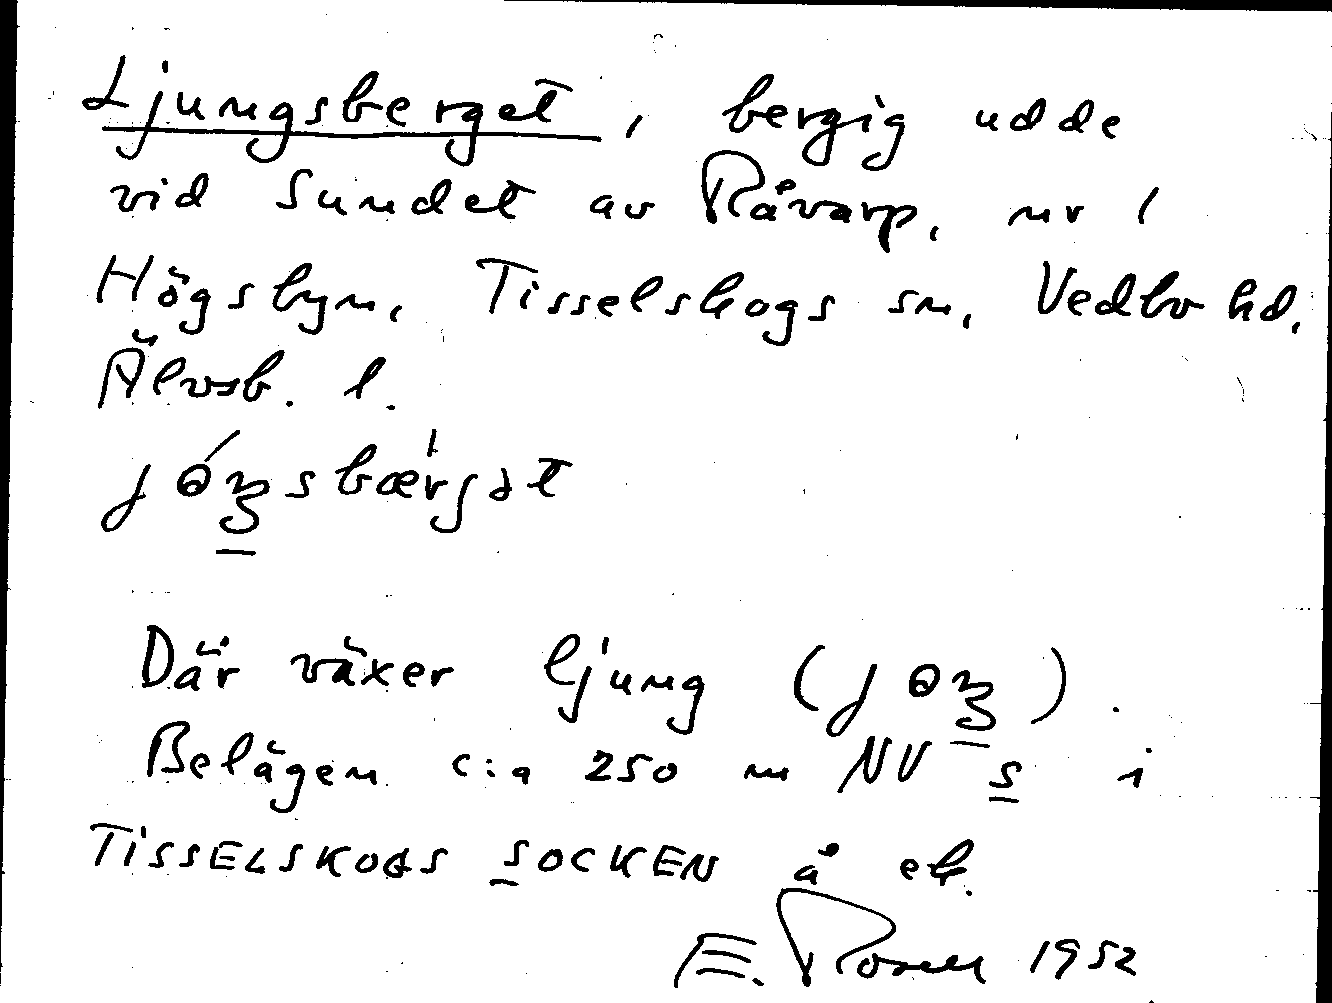 Ljungsberget, bergig udde
vid Sundet av Råvarp, nr 1
Högsbyn, Tisselskogs sn, Vedbo hd,
Älvsb. l.
jóŋsbæ̍rgət
Där växer ljung (jɵŋ).
Belägen c:a 250 m NV s i
TISSELSKOGS SOCKEN å ek.
E. Rosell 1952